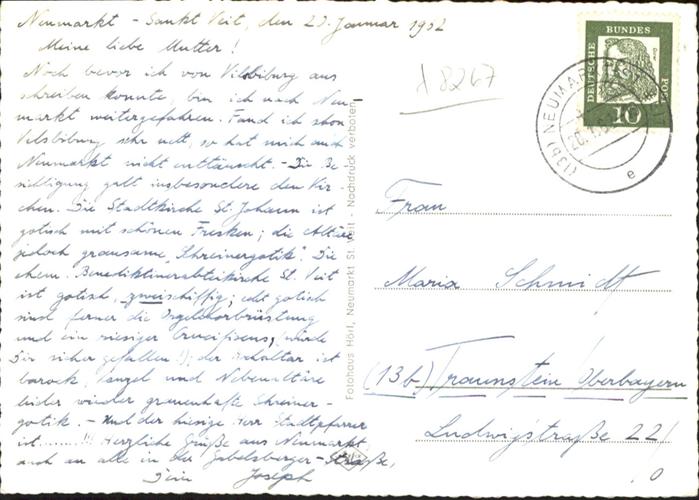 Neumarkt - Sankt Veit, den 20. Januar 1962
Meine liebe Mutter!
Noch bevor ich von Vilsbiburg aus
schreiben konnte, bin ich nach Neu-
markt weitergefahren. Fand ich schon
Vilsbiburg sehr nett, so hat mich auch
Neumarkt nicht enttäuscht. - Die Be
sichtigung galt insbesondere den Kir
chen. Die Stadtkirche St. Johann ist
gotisch mit schönen Fresken; die Altäre
jedoch grausame "Schreinergotik". Die
ehem. Benediktinerabteikirche St. Veit
ist gotisch, zweischiffig; echt gotisch
sind ferner die Orgelchorbrüstung
und ein riesiger Crucifixus, würde
Dir sicher gefallen!); der Hochaltar ist
barock, Kanzel und Nebenaltäre
leider wieder grauenhafte Schreiner-
gotik. - Und der hiesige Herr Stadtpfarrer
ist ........!!! Herzliche Grüße aus Neumarkt
auch an alle in der Gabelsberger-Straße,
Dein Joseph
Fotohaus Hörl, Neumarkt St. Veit - Nachdruck verboten
d 8267
DEUTSCHE BUNDESPOST
10
(13b) NEUMARKT
20.1.
e
Frau
Maria Schmidt
(13b) Traunstein Oberbayern
Ludwigstraße 22/
0